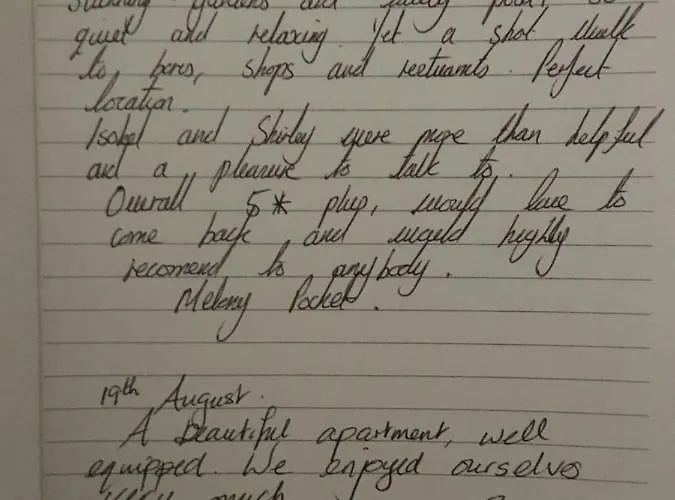 Stunning gardens and lovely pool, so
quiet and relaxing. Yet a shot walk
to bars, shops and resturants. Perfect
location.
Isobel and Shirley were more than helpful
and a pleasure to talk to.
Overall 5* plus, would love to
come back and would highly
recomend to anybody.
Melony Pocket.
19th August.
A Beautiful apartment, well
equipped. We enjoyed ourselves
very much